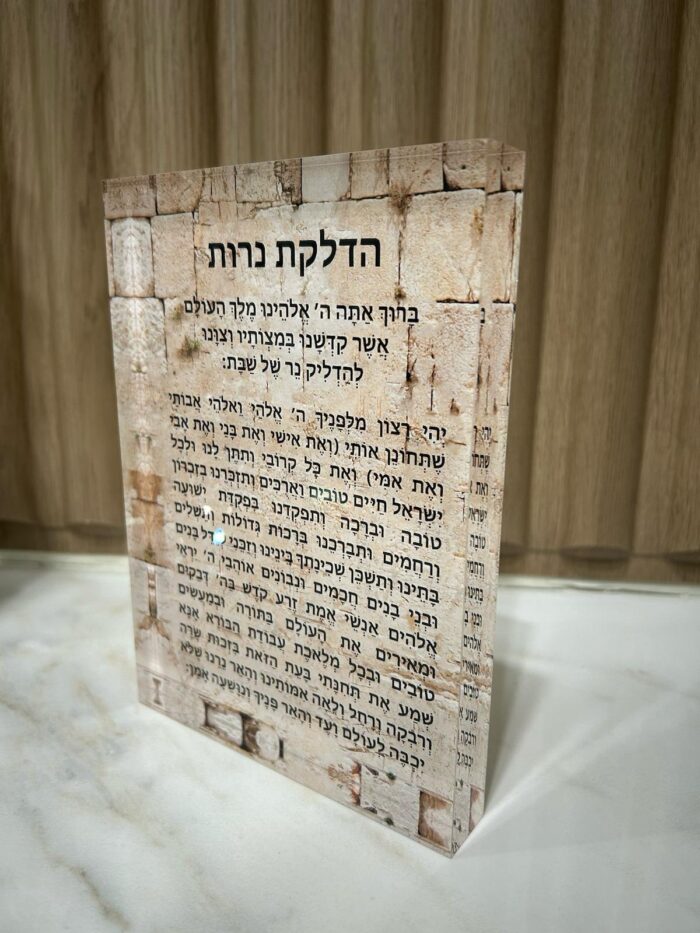 הדלקת נרות
בָּרוּךְ אַתָּה ה' אֱלֹהֵינוּ מֶלֶךְ הָעוֹלָם
אֲשֶׁר קִדְּשָׁנוּ בְּמִצְוֹתָיו וְצִוָּנוּ
לְהַדְלִיק נֵר שֶׁל שַׁבָּת:
יְהִי רָצוֹן מִלְּפָנֶיךָ ה' אֱלֹהַי וֵאלֹהֵי אֲבוֹתַי
שֶׁתְּחוֹנֵן אוֹתִי (וְאֶת אִישִׁי וְאֶת בָּנַי וְאֶת אָבִי
וְאֶת אִמִּי) וְאֶת כָּל קְרוֹבַי וְתִתֵּן לָנוּ וּלְכָל
יִשְׂרָאֵל חַיִּים טוֹבִים וַאֲרֻכִּים וְתִזְכְּרֵנוּ בְּזִכְרוֹן
טוֹבָה וּבְרָכָה וְתִפְקְדֵנוּ בִּפְקֻדַּת יְשׁוּעָה
וְרַחֲמִים וּתְבָרְכֵנוּ בְּרָכוֹת גְּדוֹלוֹת וְתַשְׁלִים
בָּתֵּינוּ וְתַשְׁכֵּן שְׁכִינָתְךָ בֵּינֵינוּ וְזַכֵּנִי לְגַדֵּל בָּנִים
וּבְנֵי בָנִים חֲכָמִים וּנְבוֹנִים אוֹהֲבֵי ה' יִרְאֵי
אֱלֹהִים אַנְשֵׁי אֱמֶת זֶרַע קֹדֶשׁ בַּה' דְּבֵקִים
וּמְאִירִים אֶת הָעוֹלָם בַּתּוֹרָה וּבְמַעֲשִׂים
טוֹבִים וּבְכָל מְלֶאכֶת עֲבוֹדַת הַבּוֹרֵא אָנָּא
שְׁמַע אֶת תְּחִנָּתִי בָּעֵת הַזֹּאת בִּזְכוּת שָׂרָה
וְרִבְקָה וְרָחֵל וְלֵאָה אִמּוֹתֵינוּ וְהָאֵר נֵרֵנוּ שֶׁלֹּא
יִכְבֶּה לְעוֹלָם וָעֶד וְהָאֵר פָּנֶיךָ וְנִוָּשֵׁעָה אָמֵן: